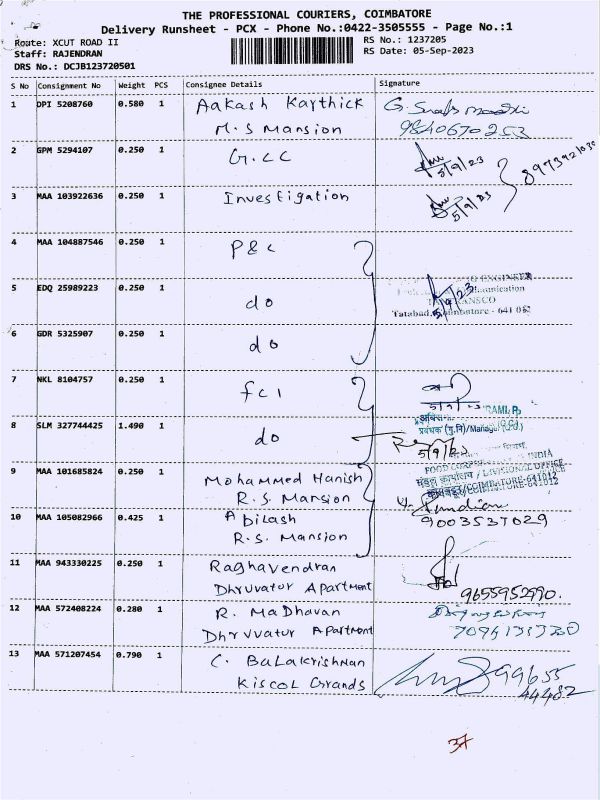 THE PROFESSIONAL COURIERS, COIMBATORE
Delivery Runsheet - PCX - Phone No.:0422-3505555 - Page No.:1
Route: XCUT ROAD II
RS No.: 1237205
Staff: RAJENDRAN
RS Date: 05-Sep-2023
DRS No.: DCJB123720501
S No Consignment No Weight PCS Consignee Details Signature
1 DPI 5208760 0.580 1 Aakash Karthick
M.S Mansion
2 GPM 5294107 0.250 1 G.CC
5/9/23
3 MAA 103922636 0.250 1 Investigation
5/9/23
4 MAA 104887546 0.250 1 P&C
5 EDQ 25989223 0.250 1 do
5/9/23
Tatabad, Coimbatore - 641 012
6 GDR 5325907 0.250 1 do
7 NKL 8104757 0.250 1 fci
5/9/23
8 SLM 327744425 1.490 1 do
प्रबंधक (गु.नि)/Manager (Q.C)
5/9/23
FOOD CORPORATION OF INDIA
मंडल कार्यालय / DIVISIONAL OFFICE
कोयम्बटूर/COIMBATORE-641012
9 MAA 101685824 0.250 1 Mohammed Hanish
R.S. Mansion
10 MAA 105082966 0.425 1 Abilash
9003537029
R.S. Mansion
11 MAA 943330225 0.250 1 Raghavendran
Dhruvatar Apartment
9655952990.
12 MAA 572408224 0.280 1 R. Madhavan
Dhruvatar Apartment
13 MAA 571207454 0.790 1 C. Balakrishnan
Kiscol Grands
99655
44482
37